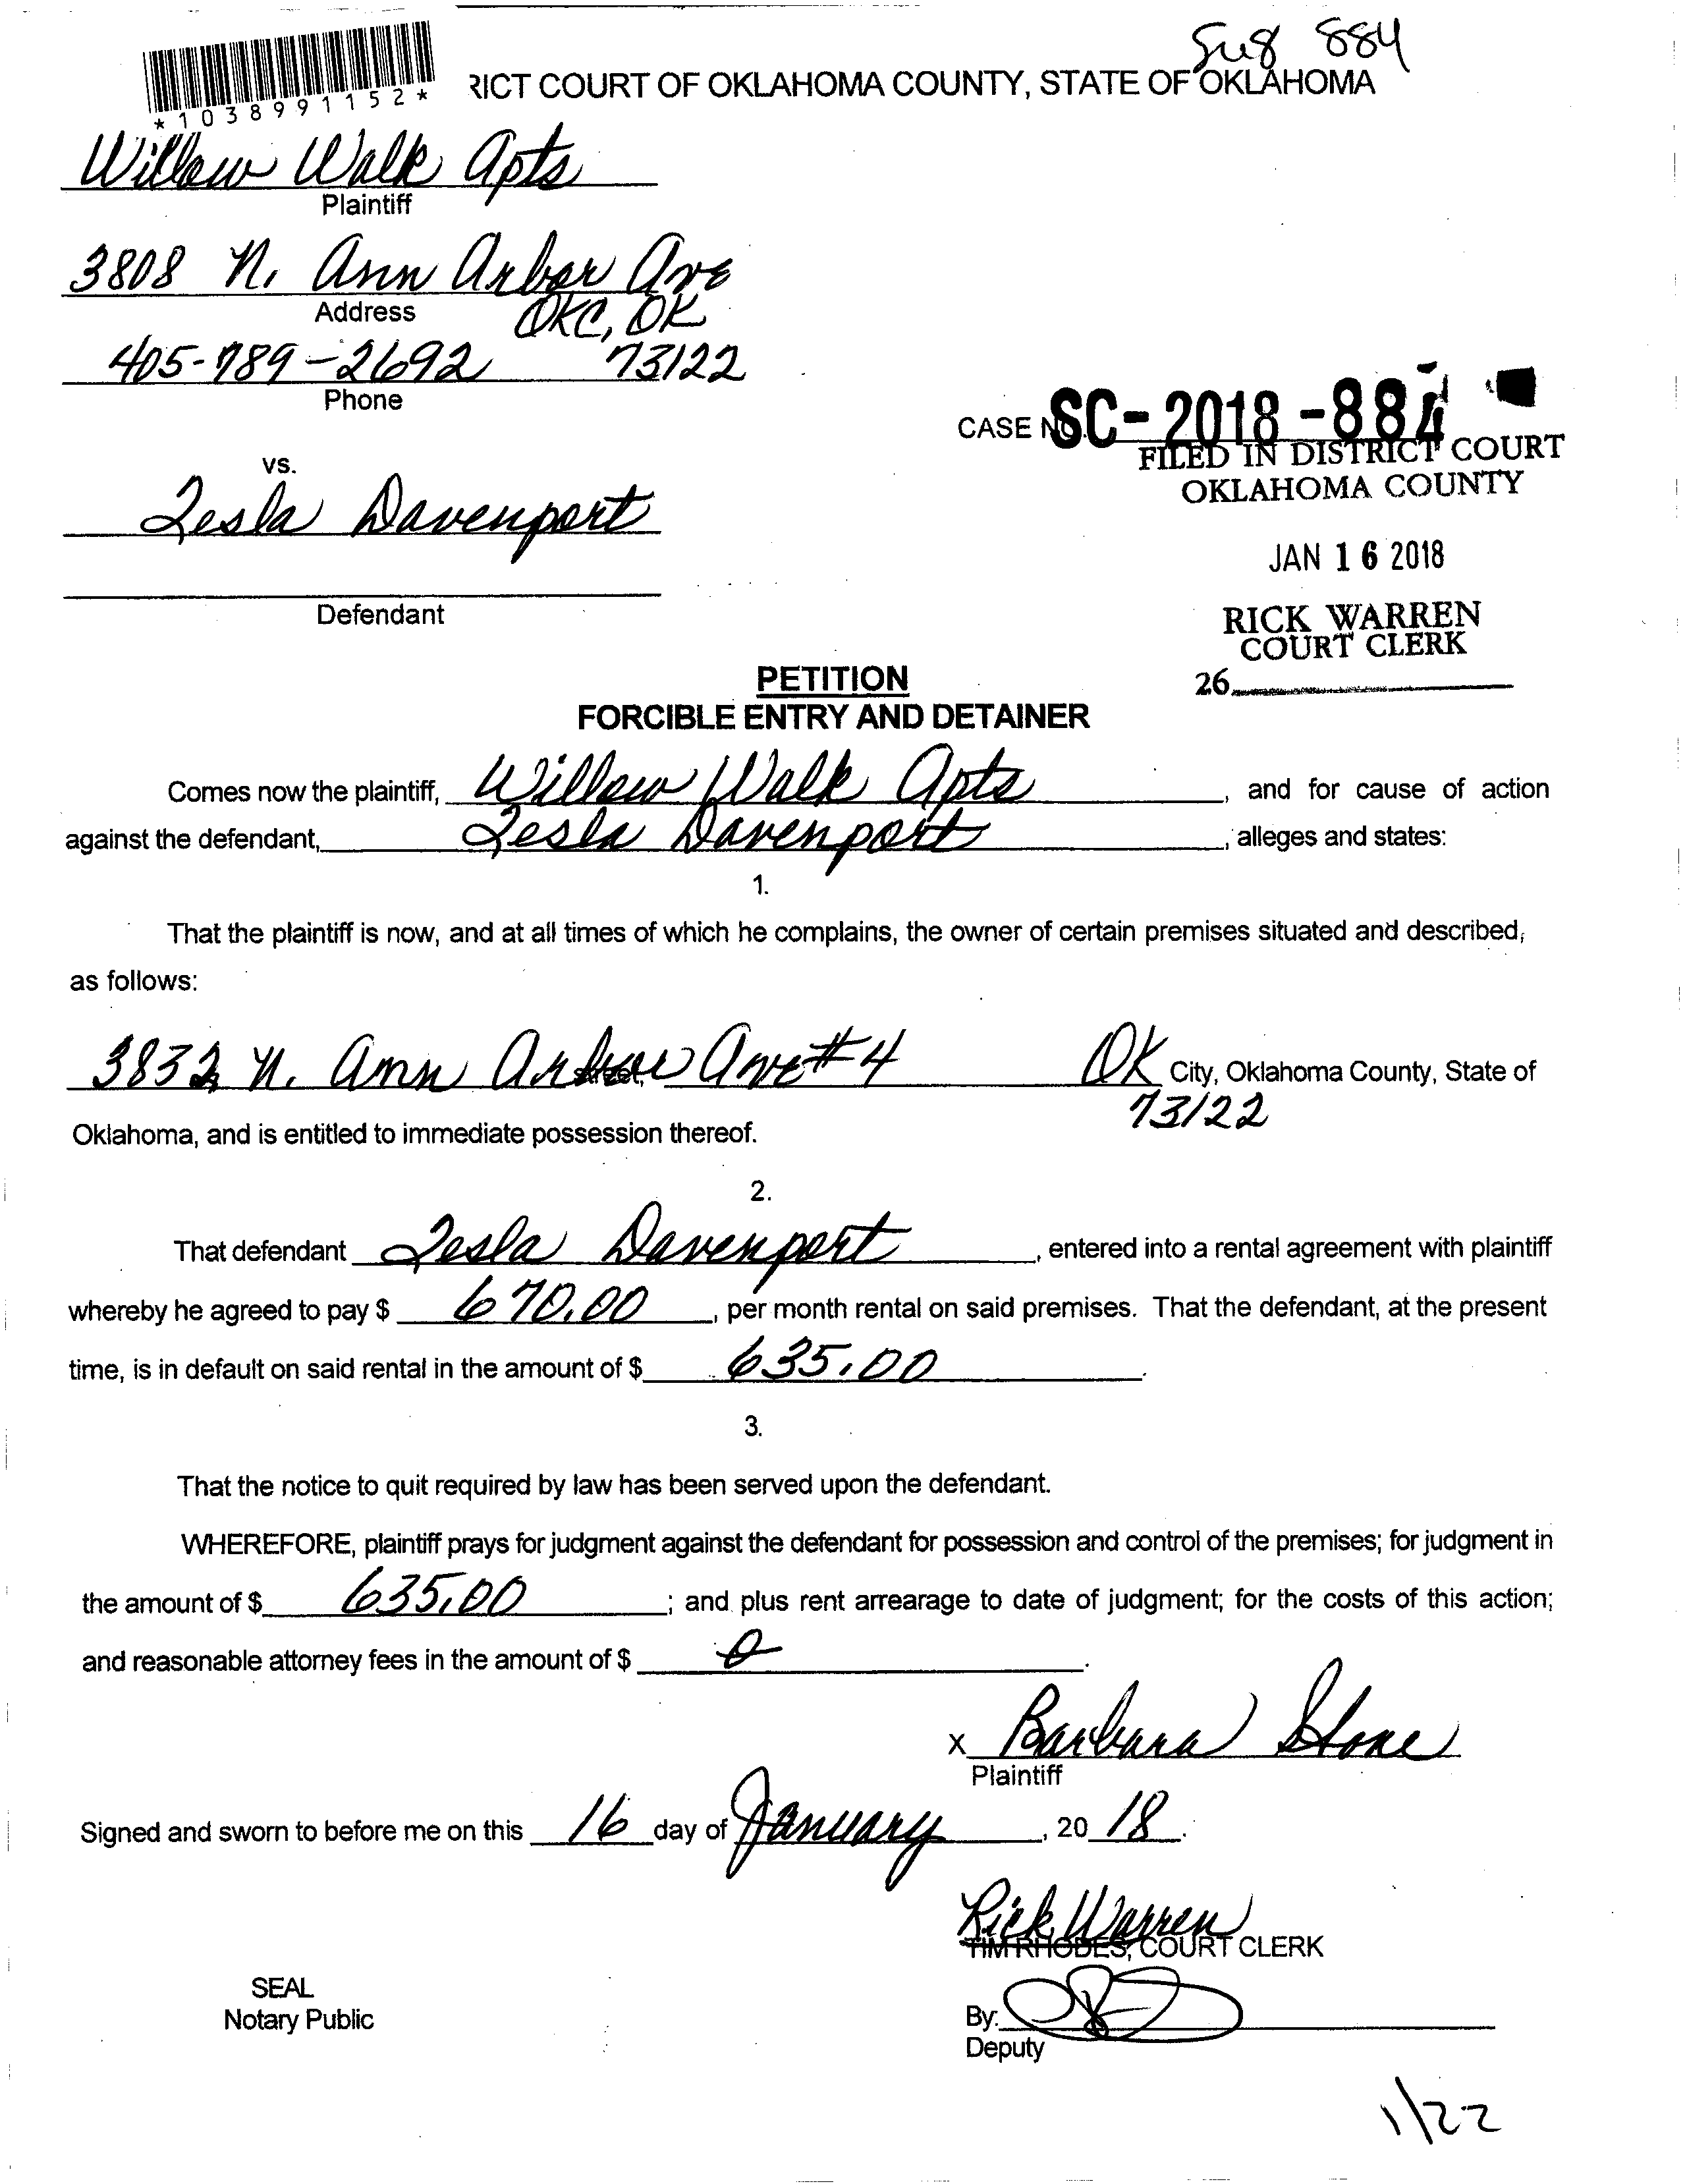 Su8 884
*1038991152*
RICT COURT OF OKLAHOMA COUNTY, STATE OF OKLAHOMA
Willow Walk Apts
Plaintiff
3808 N. Ann Arbor Ave
Address
OKC, OK
405-789-2692 73122
Phone
CASE NO. SC-2018-884
FILED IN DISTRICT COURT
OKLAHOMA COUNTY
vs.
Tesla Davenport
JAN 16 2018
Defendant
RICK WARREN
COURT CLERK
26
PETITION
FORCIBLE ENTRY AND DETAINER
Comes now the plaintiff, Willow Walk Apts, and for cause of action
against the defendant, Tesla Davenport, alleges and states:
1.
That the plaintiff is now, and at all times of which he complains, the owner of certain premises situated and described,
as follows:
3832 N. Ann Arbor Ave #4 OK City, Oklahoma County, State of
73122
Oklahoma, and is entitled to immediate possession thereof.
2.
That defendant Tesla Davenport, entered into a rental agreement with plaintiff
whereby he agreed to pay $ 670.00, per month rental on said premises. That the defendant, at the present
time, is in default on said rental in the amount of $ 635.00.
3.
That the notice to quit required by law has been served upon the defendant.
WHEREFORE, plaintiff prays for judgment against the defendant for possession and control of the premises; for judgment in
the amount of $ 635.00; and plus rent arrearage to date of judgment; for the costs of this action;
and reasonable attorney fees in the amount of $ 0.
X Barbara Stone
Plaintiff
Signed and sworn to before me on this 16 day of January, 20 18.
Rick Warren
TIM RHODES, COURT CLERK
SEAL
Notary Public
By:
Deputy
1/22